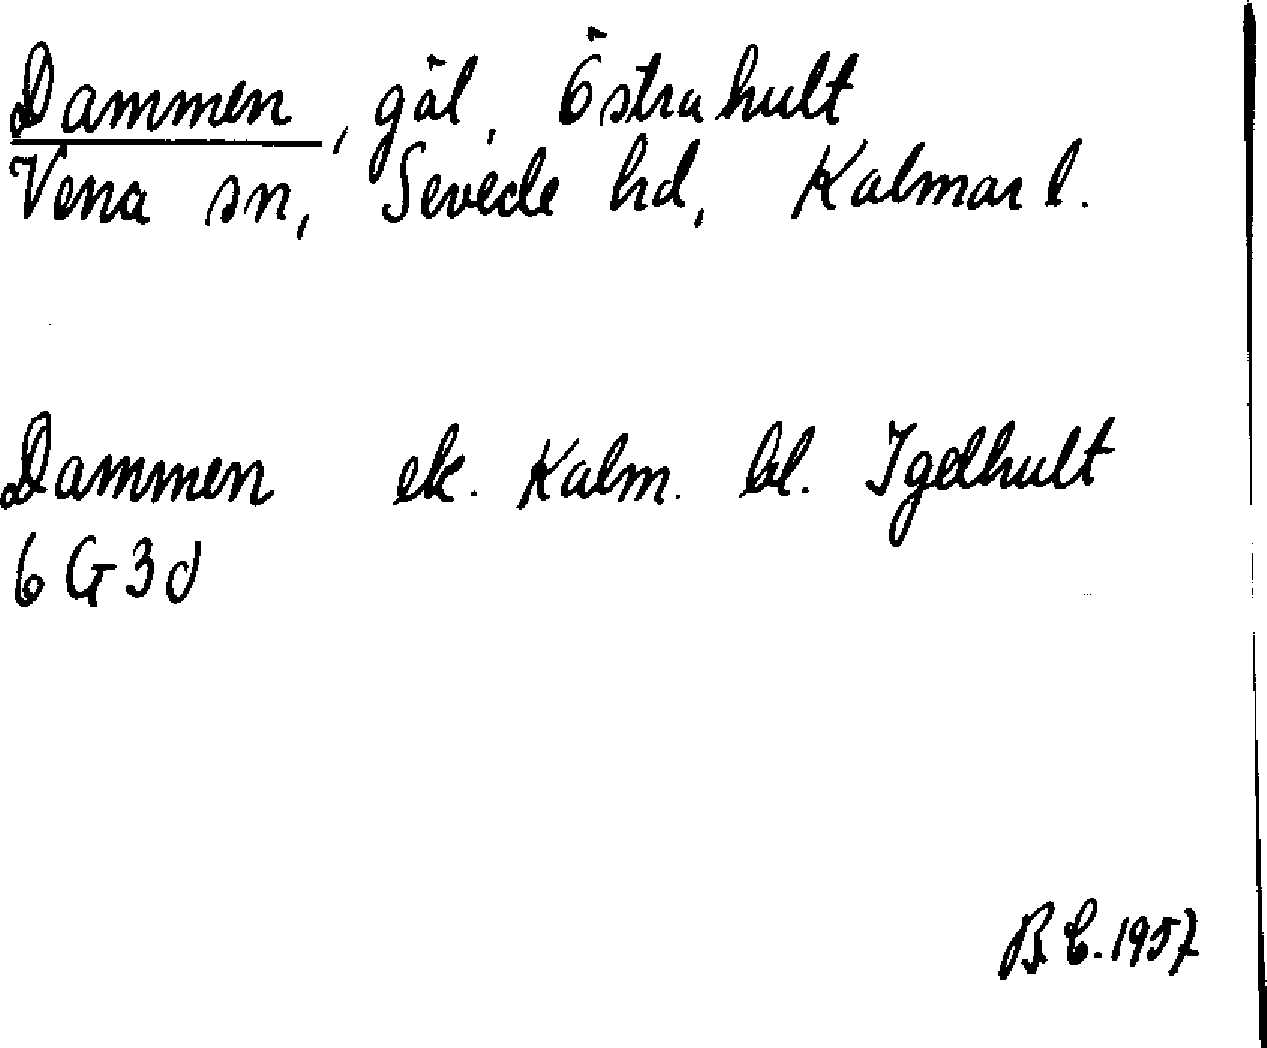 Dammen, göl, Östrahult
Vena sn, Sevede hd, Kalmar l.
Dammen ek. Kalm. bl. Igelhult
6 G 3d
B.E. 1957